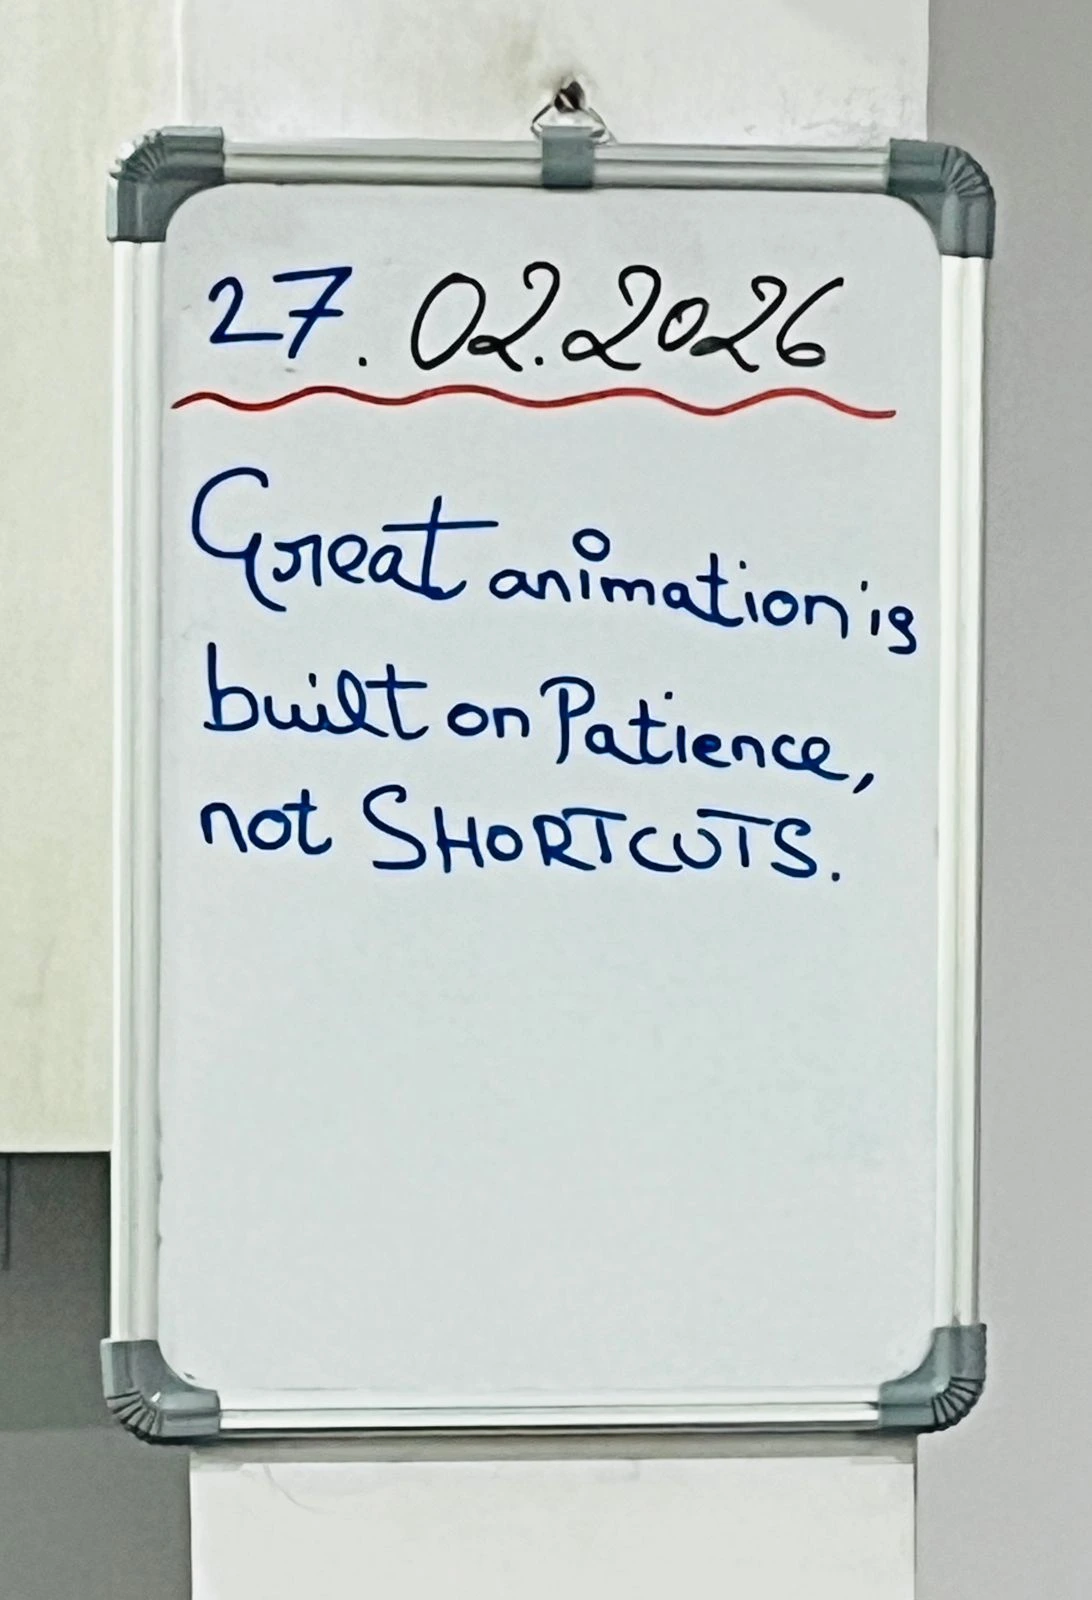 27.02.2026
Great animation is
built on Patience,
not SHORTCUTS.